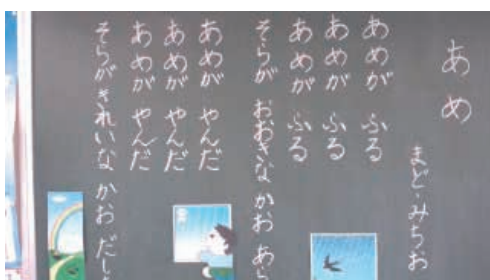 あめ
まど・みちお
あめが ふる
あめが ふる
あめが ふる
そらが おおきな かお あら
あめが やんだ
あめが やんだ
あめが やんだ
そらが きれいな かお だし